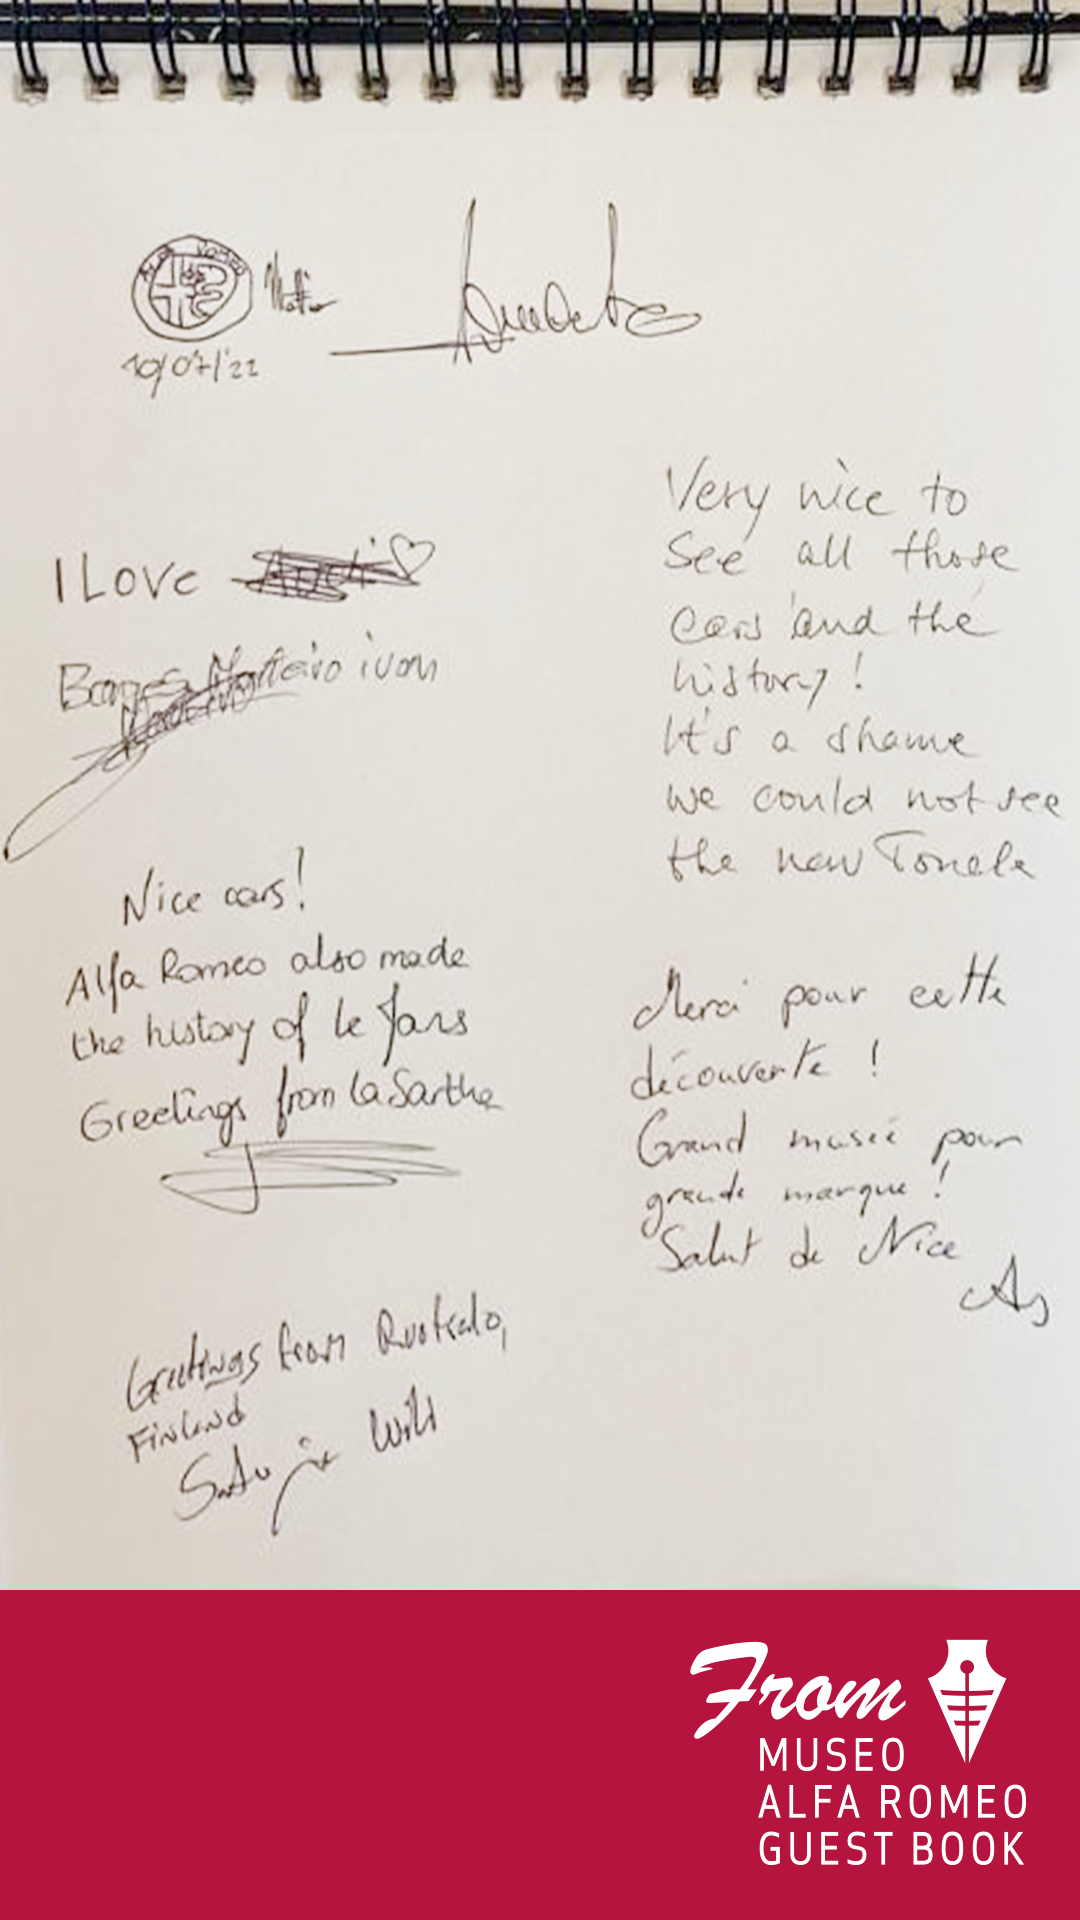 ALFA ROMEO
10/07/'22
I LOVE
Monteiro ivan
Nice cars!
Alfa Romeo also made
the history of le Jans
Greetings from la Sarthe
Greetings from
FINLAND
Satu ja Will
Very nice to
see all those
cars and the
history!
It's a shame
we could not see
the new Tonale
Merci pour cette
découverte !
Grand musée pour
grande marque !
Salut de Nice
From
MUSEO
ALFA ROMEO
GUEST BOOK